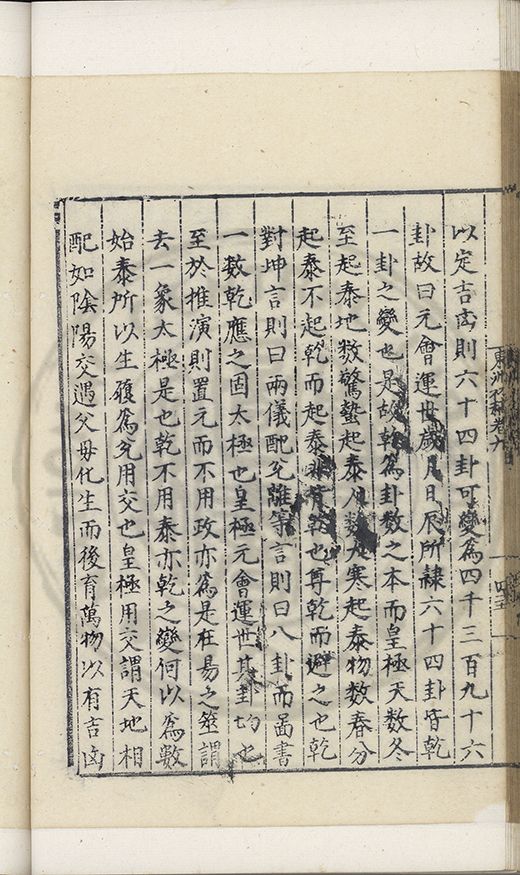 以定吉凶則六十四卦可變爲四千三百九十六
卦故曰元會運世歲月日辰所隷六十四卦皆乾
一卦之變也是故乾爲卦數之本而皇極天數冬
至起泰地数驚蟄起泰人数大寒起泰物数春分
起泰不起乾而起泰非背乾也尊乾而避之也乾
對坤言則曰兩儀配兊離言則曰八卦而啚書
一数乾應之固太極也皇極元會運世其卦切也
至於推演則置元而不用政亦爲是在易之筮謂
去一象太極是也乾不用泰亦乾之變何以爲數
始泰所以生履爲兊用交也皇極用交謂天地相
配如陰陽交遇父母化生而後育萬物以有吉凶
東洲卷九